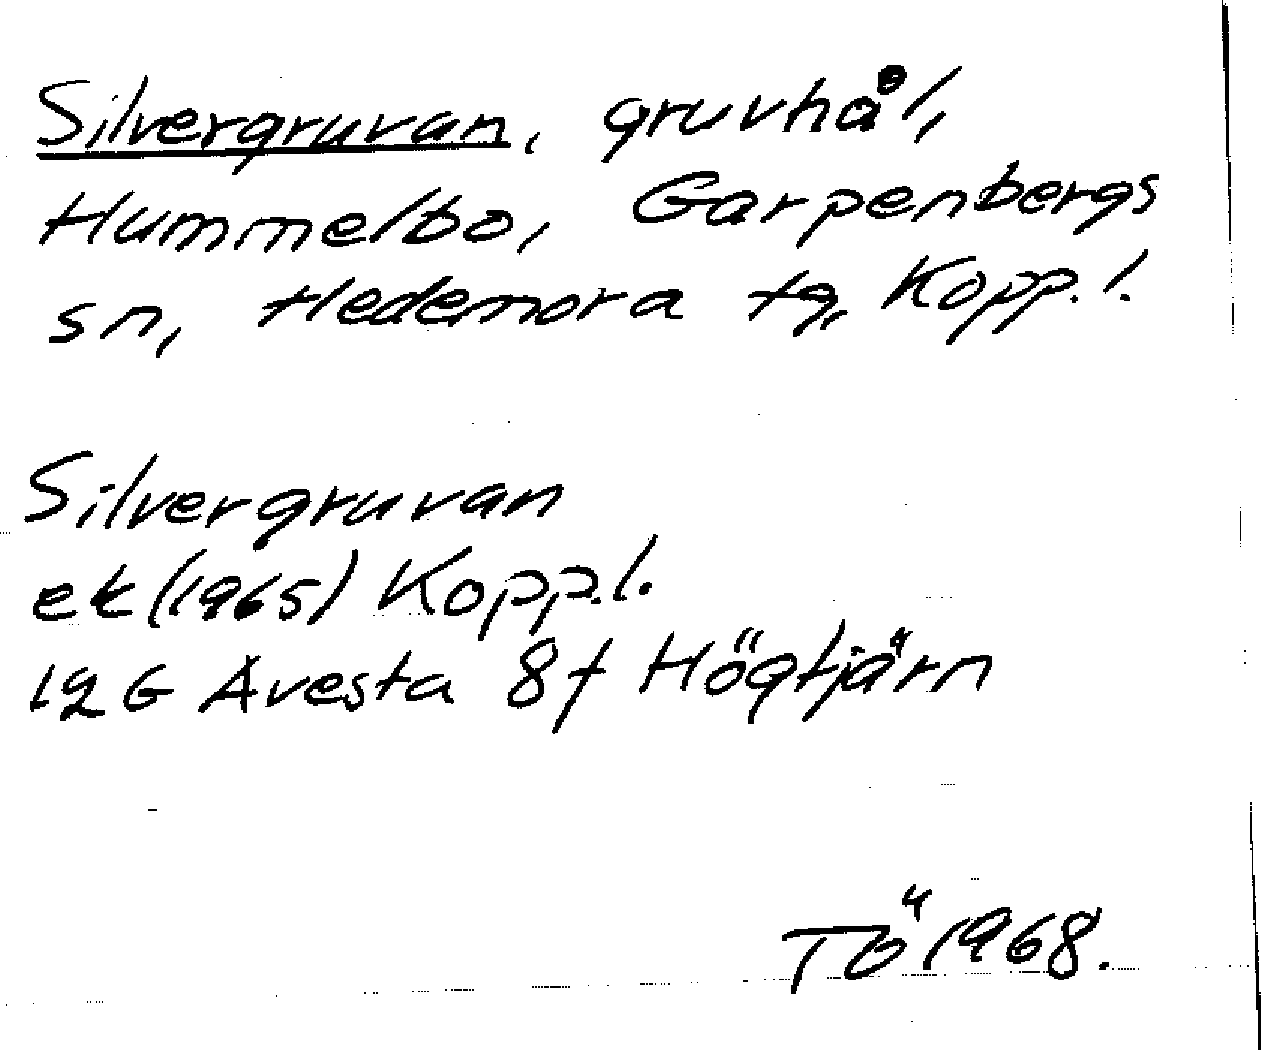 Silvergruvan, gruvhål,
Hummelbo, Garpenbergs
sn, Hedemora tg, Kopp. l.
Silvergruvan
ek (1965) Kopp. l.
12 G Avesta 8f Högtjärn
TÖ 1968.